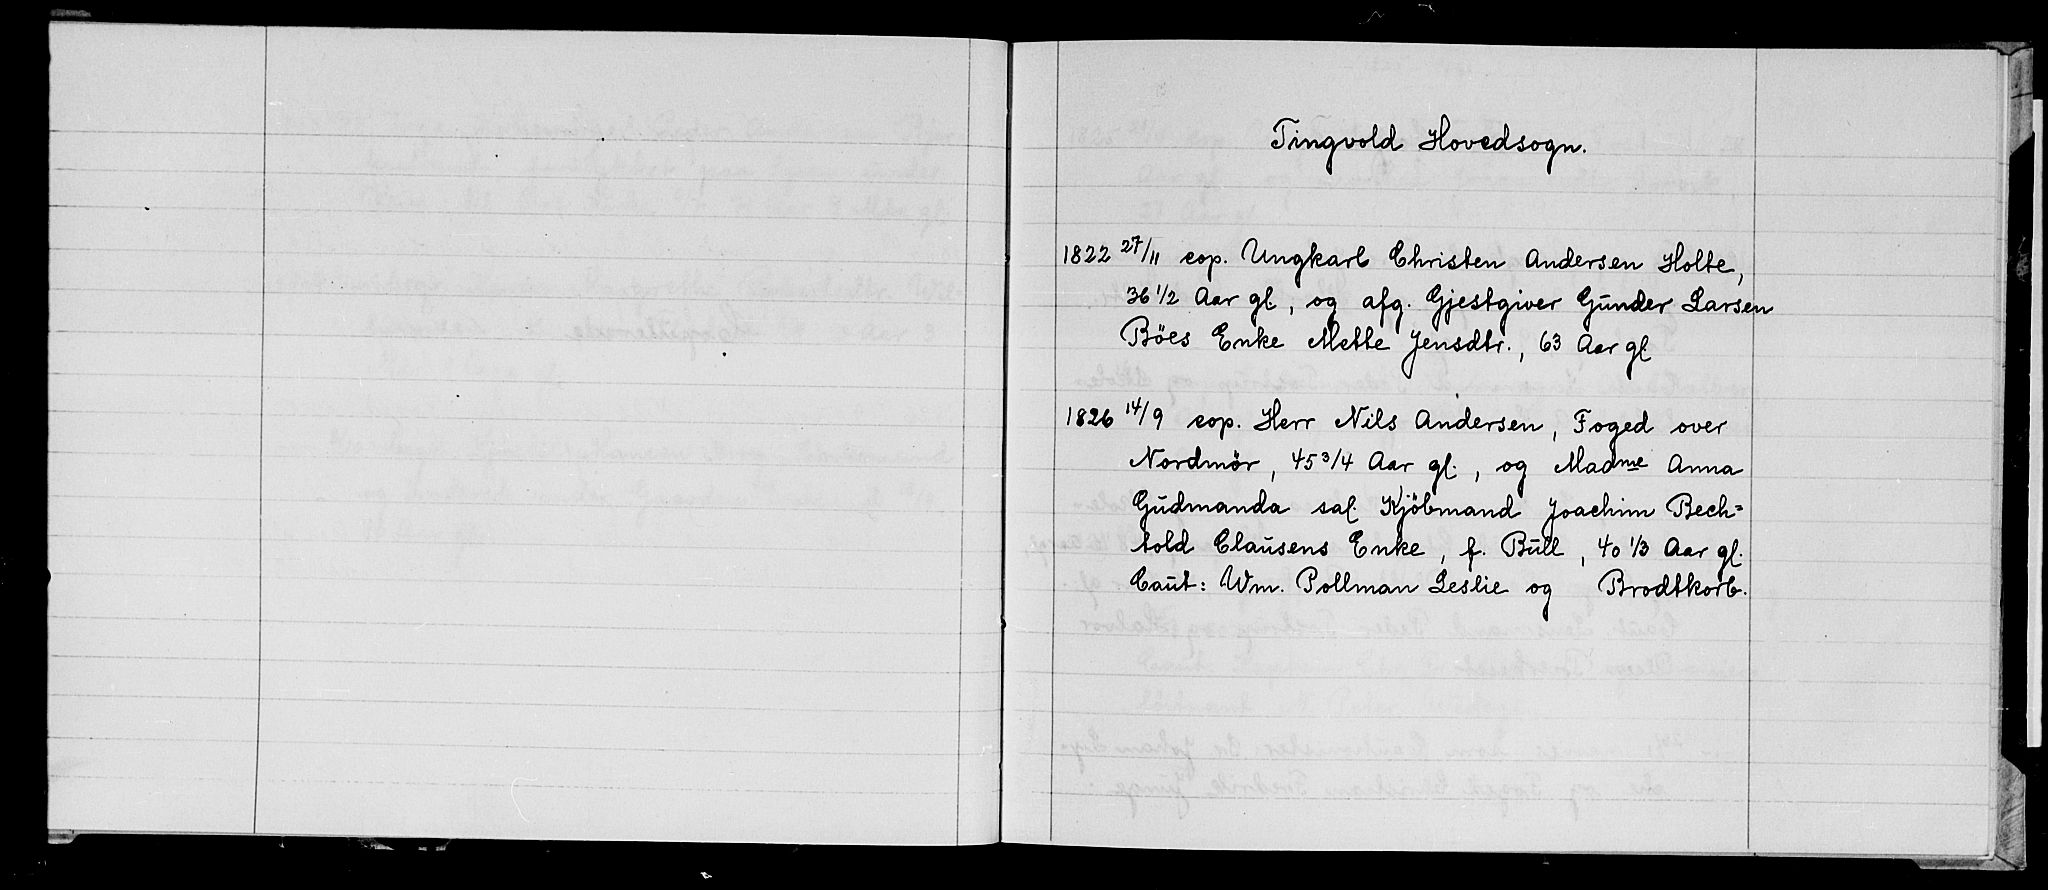 Tingvold Hovedsogn.
1822 27/11 cop. Ungkarl Christen Andersen Holte,
36 1/2 Aar gl., og afg. Gjestgiver Gunder Larsen
Böes Enke Mette Jensdtr., 63 Aar gl
1826 14/9 cop. Herr Nils Andersen, Foged over
Nordmör, 45 3/4 Aar gl., og Madme Anna
Gudmanda sal. Kjöbmand Joachim Bech=
told Clausens Enke, f. Bull, 40 1/3 Aar gl.
Caut: Wm. Pollman Leslie og Brodtkorb.